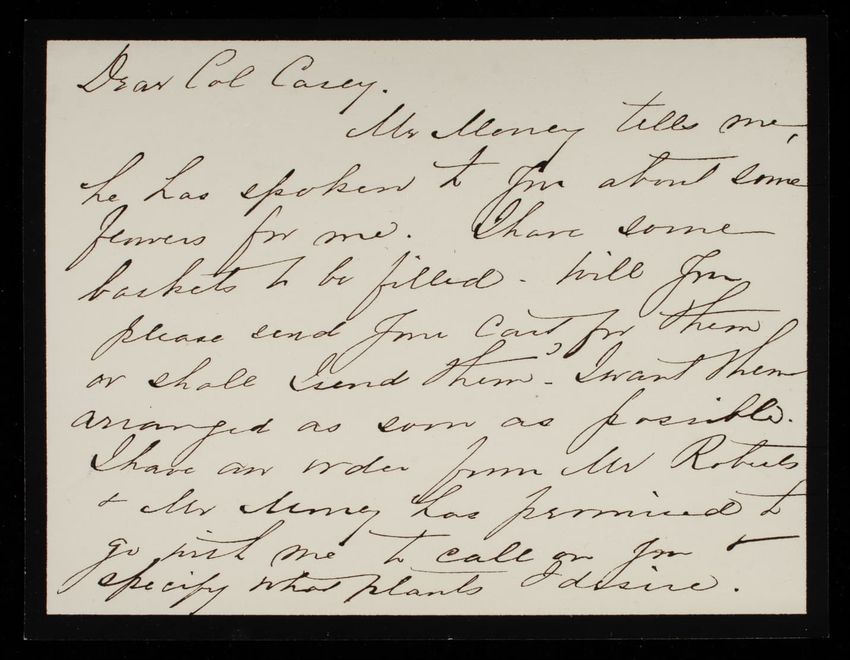 Dear Col Casey.
Mr Money tells me,
he has spoken to you about some
flowers for me. I have some
baskets to be filled - Will you
please send your cart for them
or shall I send them? - I want them
arranged as soon as possible.
I have an order from Mr Roberts
& Mr Money has promised to
go with me to call on you &
specify what plants I desire.